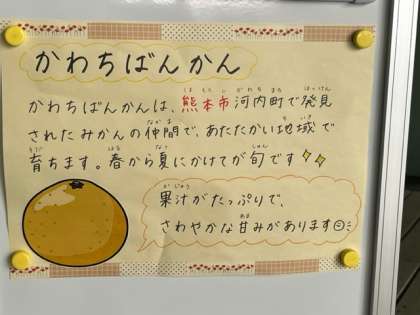 かわちばんかん
かわちばんかんは、熊本市河内町で発見
されたみかんの仲間で、あたたかい地域で
育ちます。春から夏にかけてが旬です
果汁がたっぷりで、
さわやかな甘みがあります